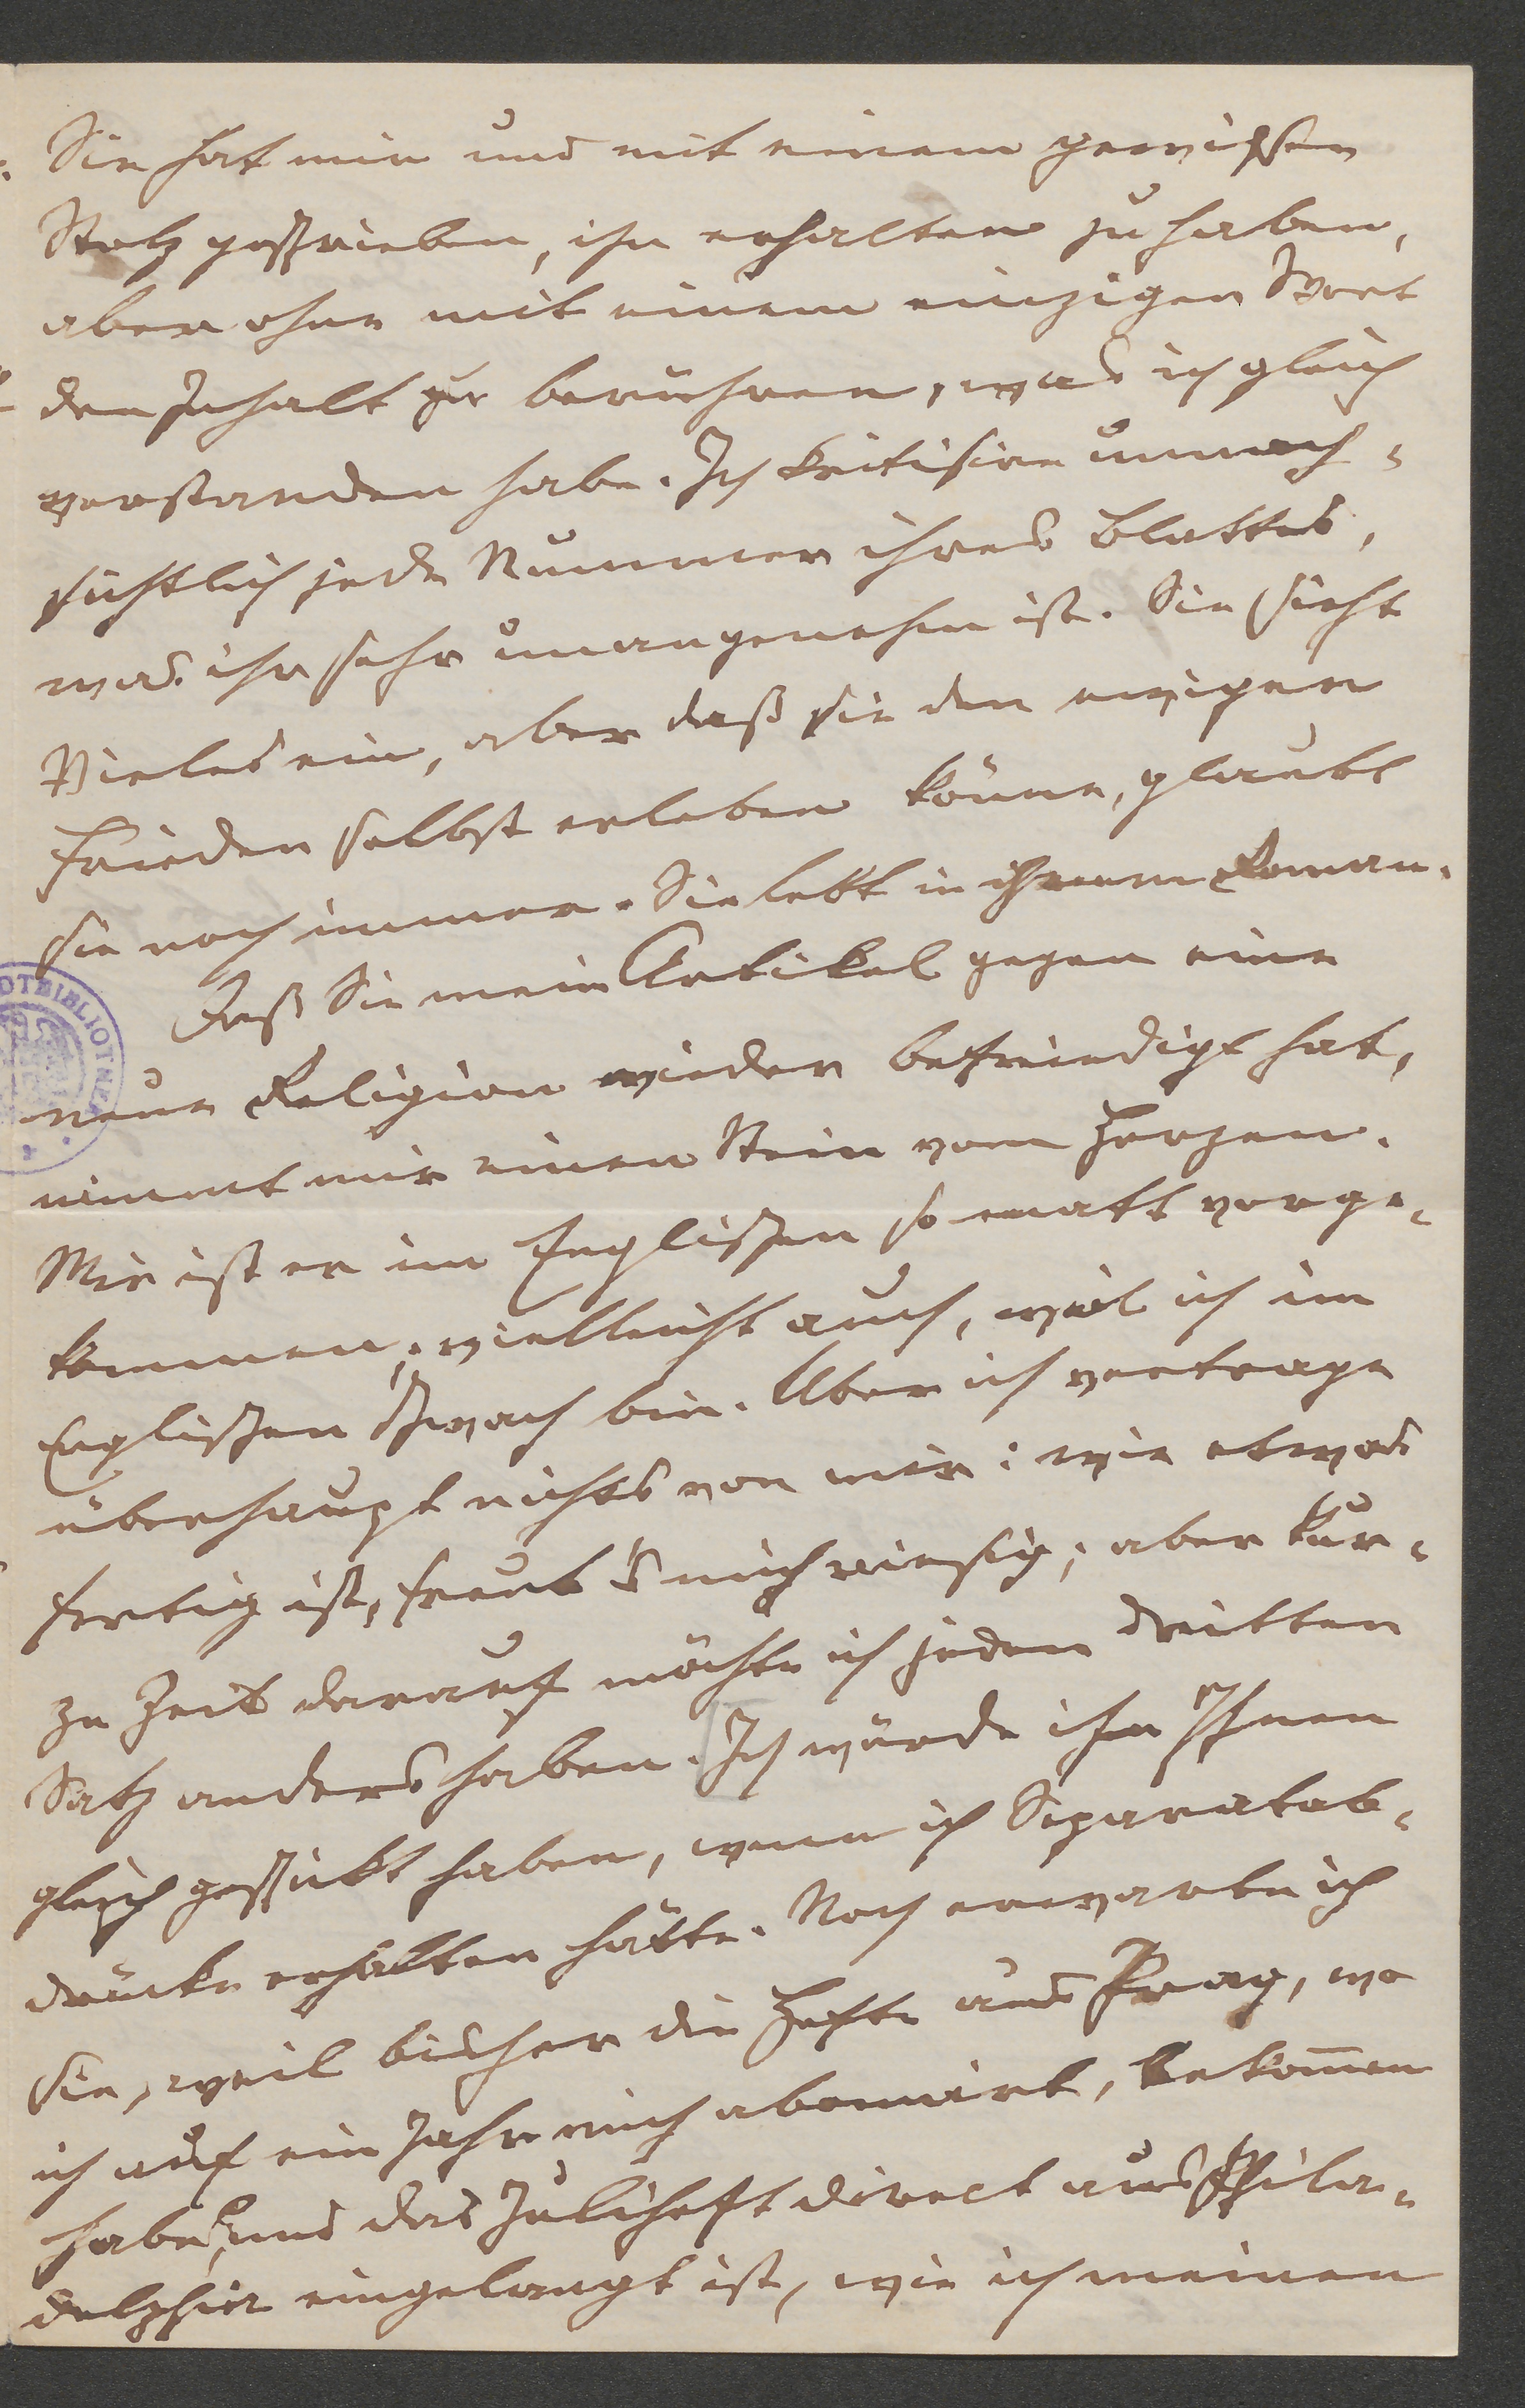 Sie hat mir nur mit einem gewissen
Stolz geschrieben, ihn erhalten zu haben,
aber ohne mit einem einzigen Wort
den Inhalt zu berühren, was ich gleich
verstanden habe. Ich kritisire unnach-
sichtlich jede Nummer ihres Blattes,
was ihr sehr unangenehm ist. Sie sieht
Vieles ein, aber daß sie den ewigen
Frieden selbst erleben könne, glaubt
sie noch immer. Sie lebt in ihrem Roman.
Daß Sie mein Artikel gegen eine
neue Religion wieder befriedigt hat,
nimmt mir einen Stein vom Herzen.
Mir ist er im Englischen so matt vorge-
kommen; vielleicht auch, weil ich im
Englischen schwach bin. Aber ich vertrage
überhaupt nichts von mir: wie etwas
fertig ist, freut's mich riesig; aber kur-
ze Zeit darauf möchte ich jeden dritten
Satz anders haben. Ich würde ihn Ihnen
gleich geschickt haben, wenn ich Separatab-
drücke erhalten hätte. Noch erwarte ich
sie, weil bisher die Hefte aus Prag, wo
ich auf ein Jahr mich abonnirt, bekom̄en
habe, und das Juliheft direct aus Phila-
delphia eingelangt ist, wie ich meinen